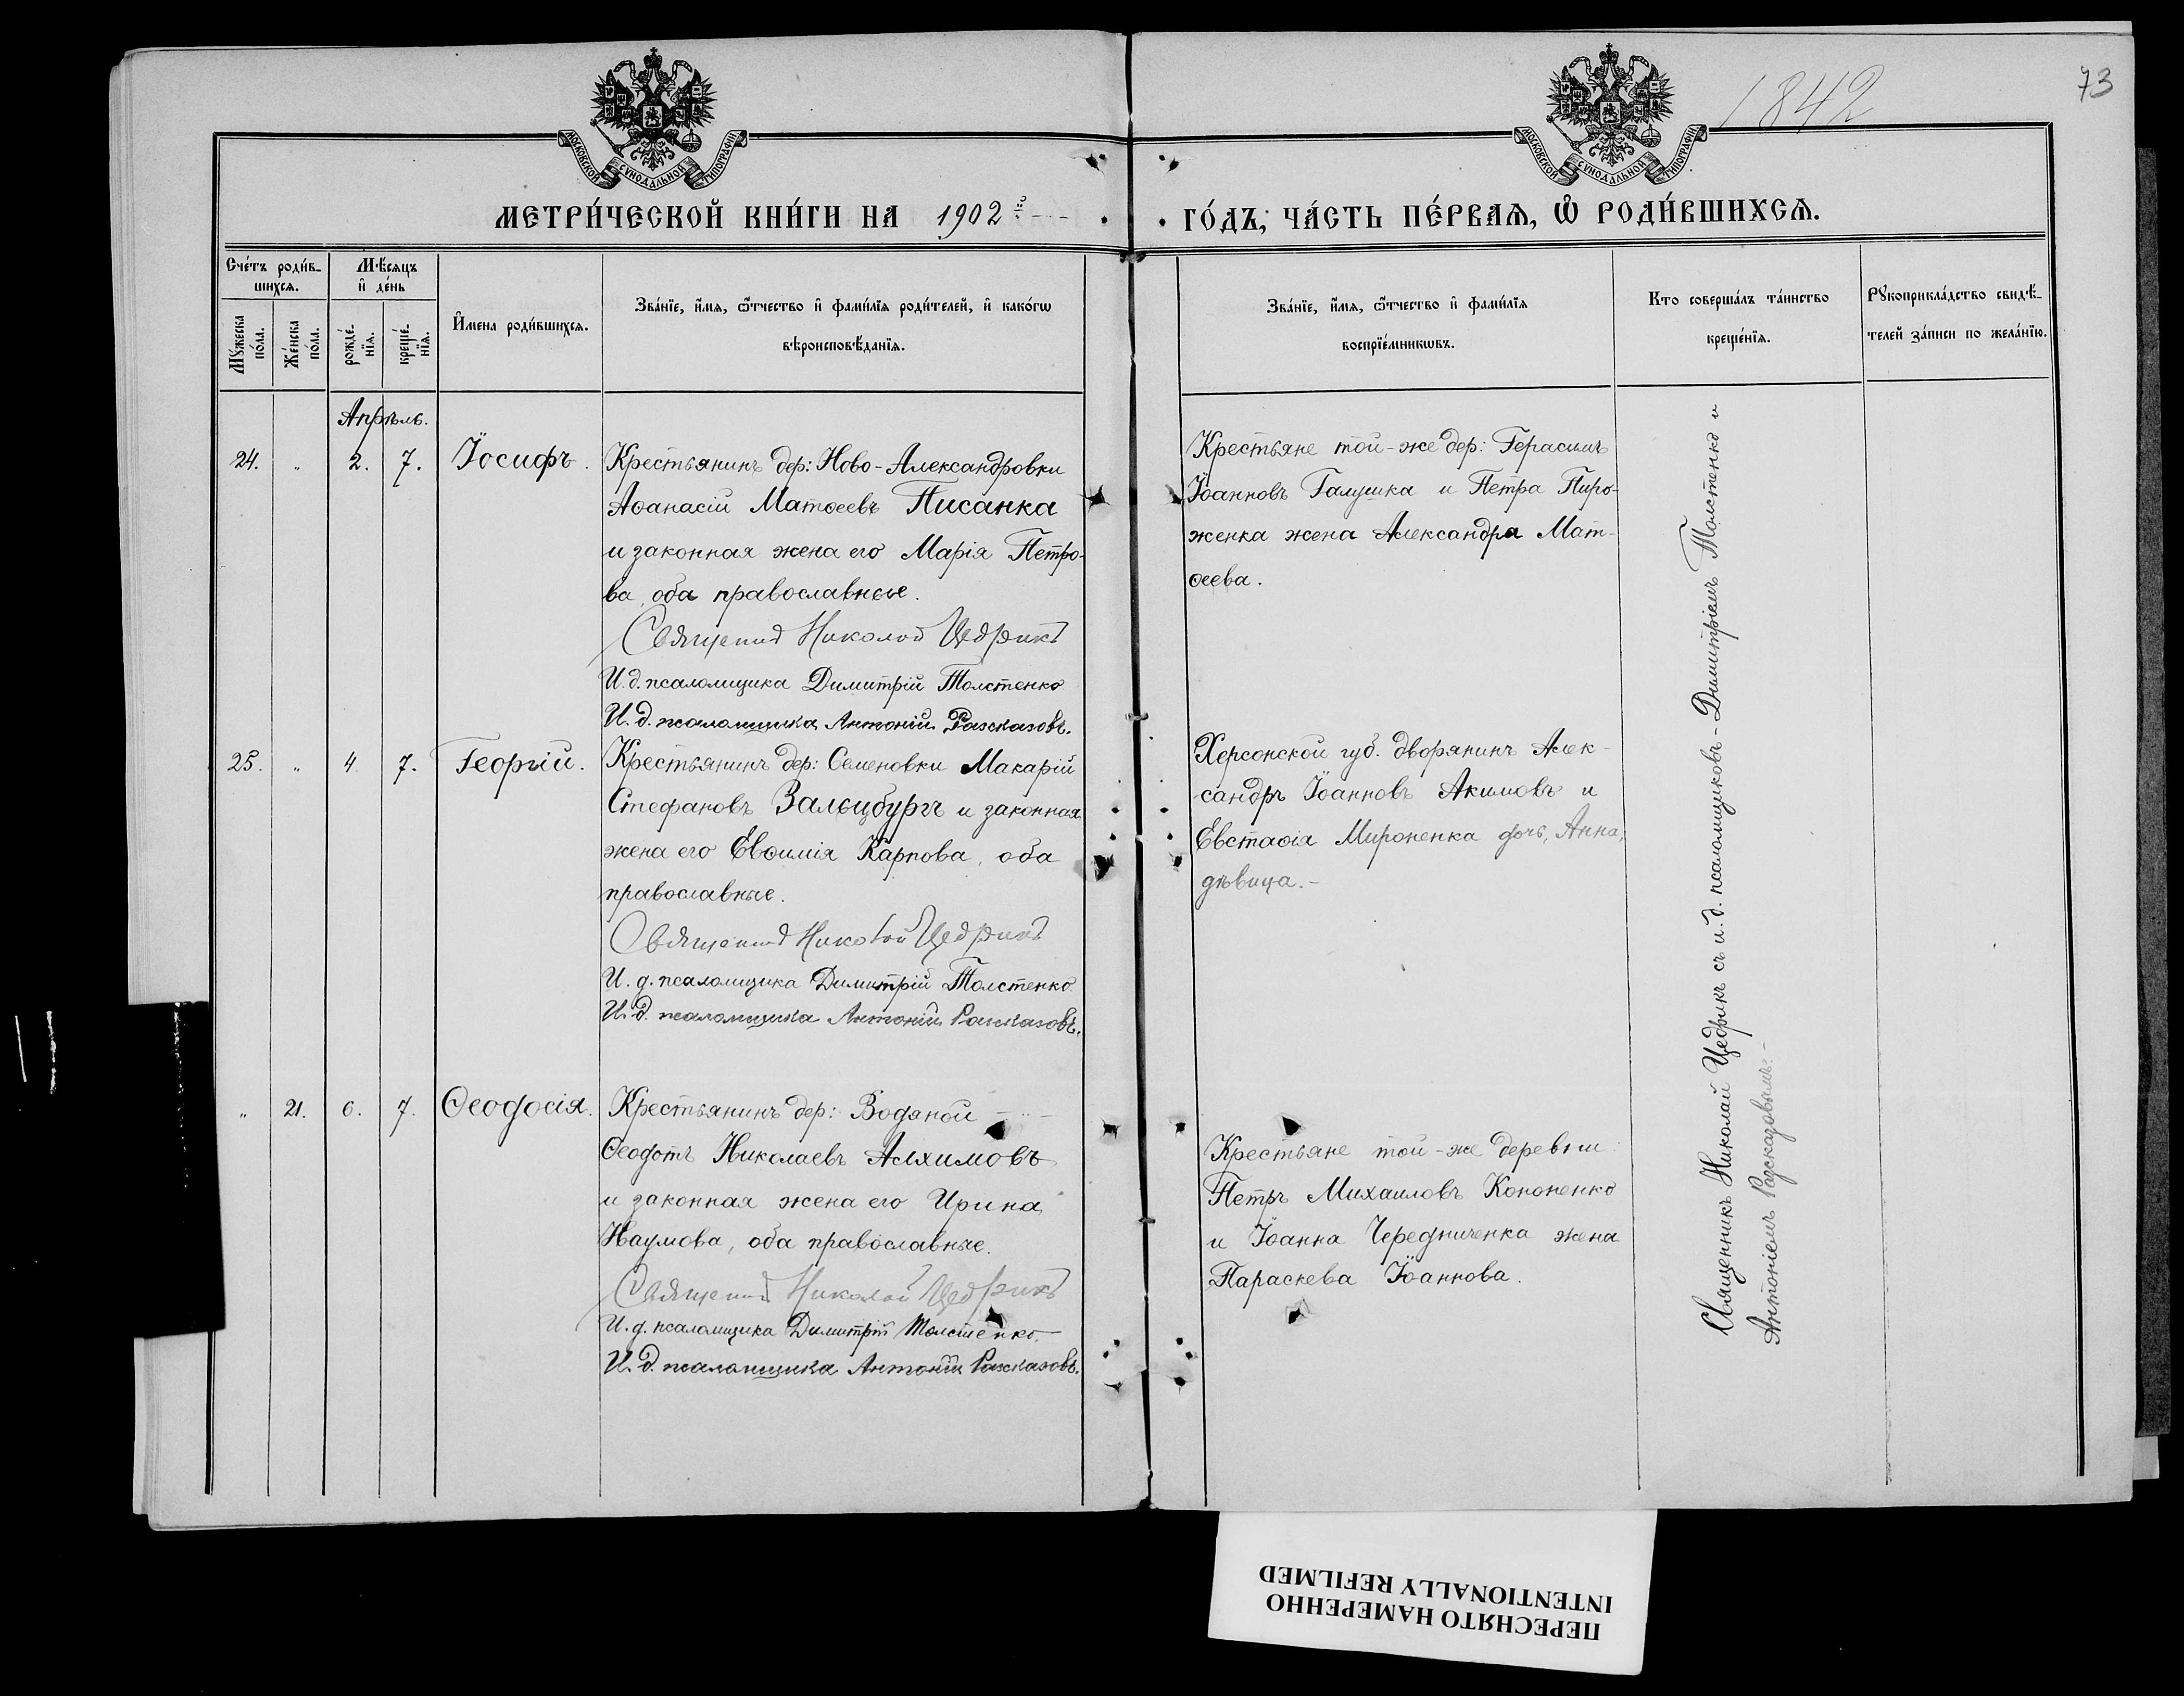 1842
73
МОСКОВСКОЙ СѴНОДАЛЬНОЙ ТИПОГРАФІИ
МОСКОВСКОЙ СѴНОДАЛЬНОЙ ТИПОГРАФІИ
МЕТРИ́ЧЕСКОЙ КНИ́ГИ НА 1902й
ГО́ДЪ, ЧА́СТЬ ПЕ́РВАѦ, Ѡ҆ РОДИ́ВШИХСѦ.
Сче́тъ роди́в-
шихсѧ.
Мꙋ́жеска по́ла.
Же́нска по́ла.
Мѣ́сѧцъ
и҆ де́нь
рожде́-
нїѧ.
креще́-
нїѧ.
И҆мена роди́вшихсѧ.
Зва́нїе, и҆́мѧ, ѻ҆́тчество и҆ фами́лїѧ роди́телей, и҆ како́гѡ
вѣроисповѣ́данїѧ.
Зва́нїе, и҆́мѧ, ѻ҆́тчество и҆ фами́лїѧ
воспрїе́мникѡвъ.
Кто соверша́лъ та́инство
креще́нїѧ.
Рꙋкоприкла́дство свидѣ́-
телей за́писи по жела́нїю.
Апрѣль.
24. „ 2. 7. Іосифъ.
Крестьянинъ дер: Ново-Александровки
Аѳанасій Матѳеевъ Писанка
и законная жена его Марія Петро-
ва, оба православные.
Священникъ Николай Цедрикъ
И. д. псаломщика Димитрій Толстенко
И. д. псаломщика Антоній Разсказовъ.
Крестьяне той-же дер: Герасимъ
Іоанновъ Галушка и Петра Пиро-
женка жена Александра Мат-
ѳеева.
25. „ 4 7. Георгій.
Крестьянинъ дер: Семеновки Макарій
Стефановъ Залецбургъ и законная
жена его Евѳимія Карпова, оба
православные.
Священникъ Николай Цедрикъ
И. д. псаломщика Димитрій Толстенко
И. д. псаломщика Антоній Разсказовъ.
Херсонской губ. дворянинъ Алек-
сандръ Іоанновъ Акимовъ и
Евстаѳія Мироненка дочь, Анна,
дѣвица.-
„ 21. 6. 7. Ѳеодосія.
Крестьянинъ дер: Водяной
Ѳеодотъ Николаевъ Алхимовъ
и законная жена его Ирина
Наумова, оба православные.
Священникъ Николай Цедрикъ
И. д. псаломщика Димитрій Толстенко.
И. д. псаломщика Антоній Разсказовъ.
Крестьяне той-же деревни
Петръ Михаиловъ Кононенко
и Іоанна Чередниченка жена
Параскева Іоаннова.
Священникъ Николай Цедрикъ съ и. д. псаломщиковъ - Димитріемъ Толстенко и
Антоніемъ Разсказовымъ.-
ПЕРЕСНЯТО НАМЕРЕННО
INTENTIONALLY REFILMED